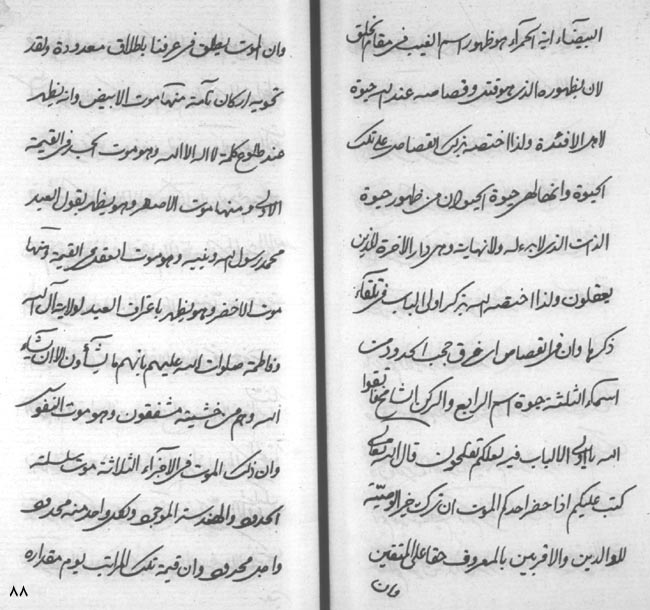 البيضآء اية الحمرآء هو ظهور اسم الغيب فى مقام الخلق
لان بظهوره الذى هو قتلى وقصاصه عند الله حيوة
لاهل الافئدة ولذا اختصه بذكر القصاص على تلك
الحيوة وانها لهى حيوة الحيوان من ظهور حيوة
الذات الذى لا بدء له ولا نهاية وهى دار الاخرة للذين
يعقلون ولذا اختصه الله بذكر اولى الباب فى تلقآء
ذكرها وان فى القصاص اى خرق حجب الحدود من
اسماء الثلثة حيوة اسم الرابع والركن فاتقوا
الله يا اولى الالباب فيه لعلكم تفلحون قال الله تعالى
كتب عليكم اذا حضر احدكم الموت ان ترك خير الوصيّة
للوالدين والاقربين بالمعروف حقا على المتقين
وان
وان الموت يطلق فى عرفنا باطلاق معدودة ولقد
تحويه اركان تآمة منها موت الابيض وانه يظهر
عند طلوع كلمة لا اله الا الله وهو موت الجسد فى القيمة
الاولى ومنها موت الاصفر وهو يظهر بقول العبد
محمد رسول الله ونبيه وهو موت العقل فى القيمة ومنها
موت الاخضر وهو يظهر باعراف العبد لولاية آل الله
وفاطمة صلوات الله عليهم بانهم ما يشآؤن الا ان يشآء
الله وهم من خشيته مشفقون وهو موت النفوس
وان ذلك الموت فى الاجزآء الثلاثة موت بسلسلته
الحدود والهندسة الموجود ولكل واحد منه محدود
واجل محدود وان قيمة تلك المراتب يوم مقداره
٨٨